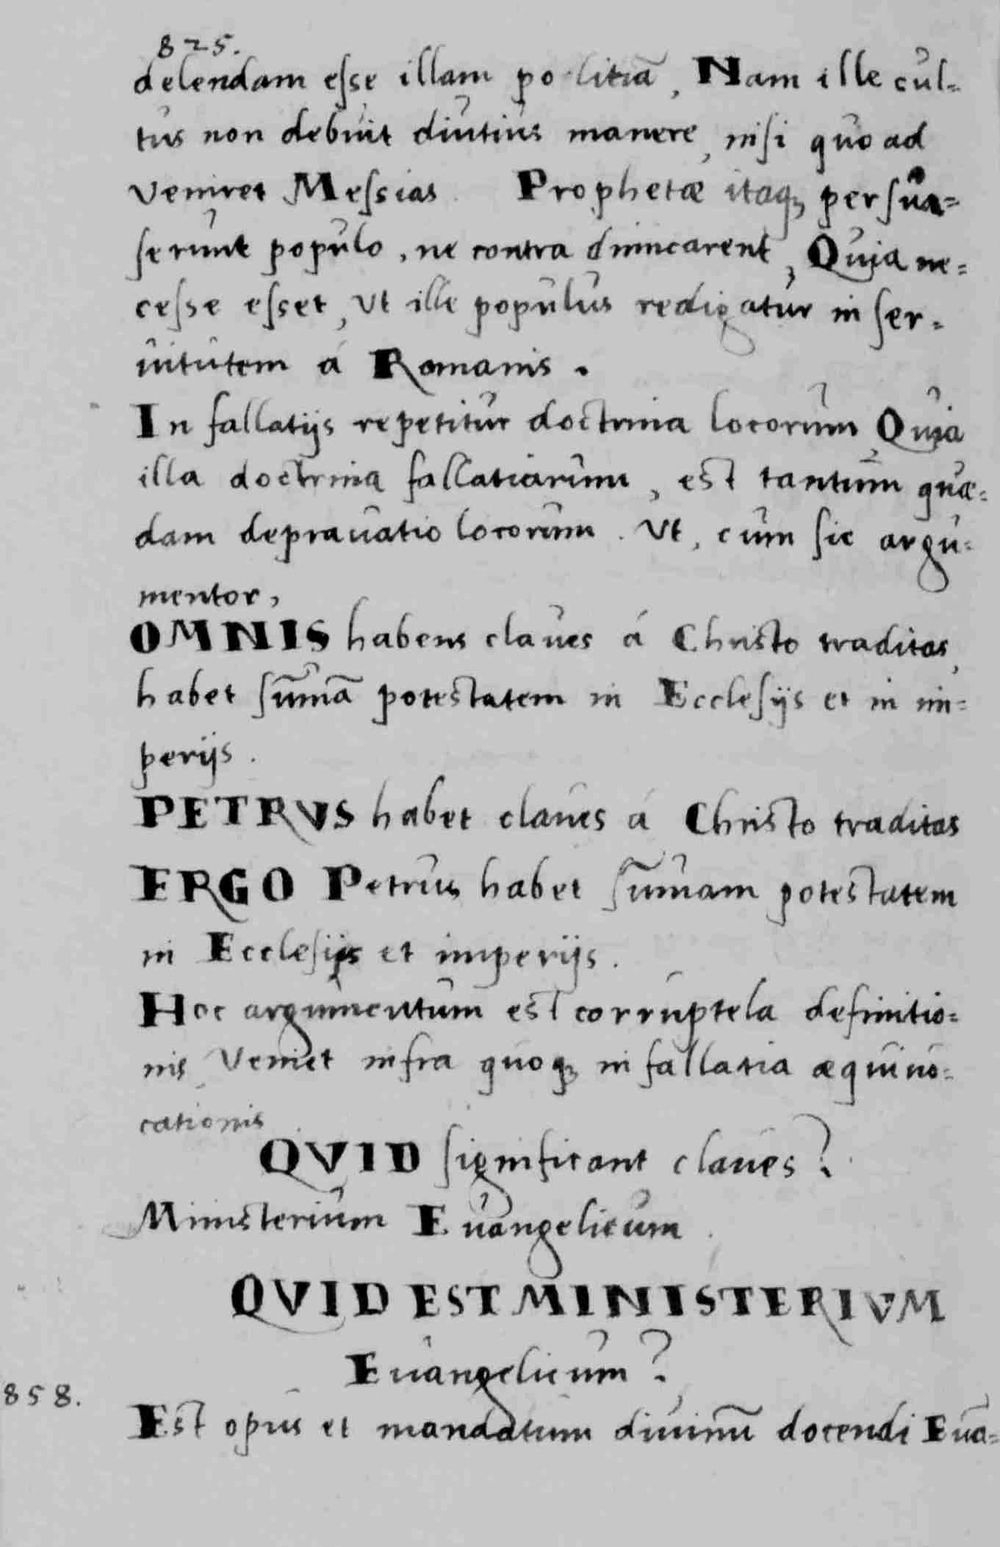 825.
delendam esse illam politiā, Nam ille cul-
tus non debuit diutius manere, nisi quo ad
veniret Messias. Prophetæ itaq; persua=
serunt populo, ne contra dimicarent, Quia ne=
cesse esset, Ut ille populus redigatur in ser=
uitutem á Romanis.
In fallatijs repetitur doctrina locorum, Quia
illa doctrina fallatiarum, est tantum quæ=
dam deprauatio locorum. Ut, cum sic argu=
mentor,
OMNIS habens claues á Christo traditas,
habet sūmā potestatem in Ecclesijs et in im=
perijs.
PETRVS habet claues á Christo traditas
ERGO Petrus habet sūmam potestatem
in Ecclesijs et imperijs.
Hoc argumentum est corruptela definitio=
nis, Veniet infra quoq; in fallatia æquiuo=
cationis
QVID significant claues?
Ministerium Euangelicum.
QVID EST MINISTERIVM
Euangelicum?
858.
Est opus et mandatum diuinū docendi Eua=